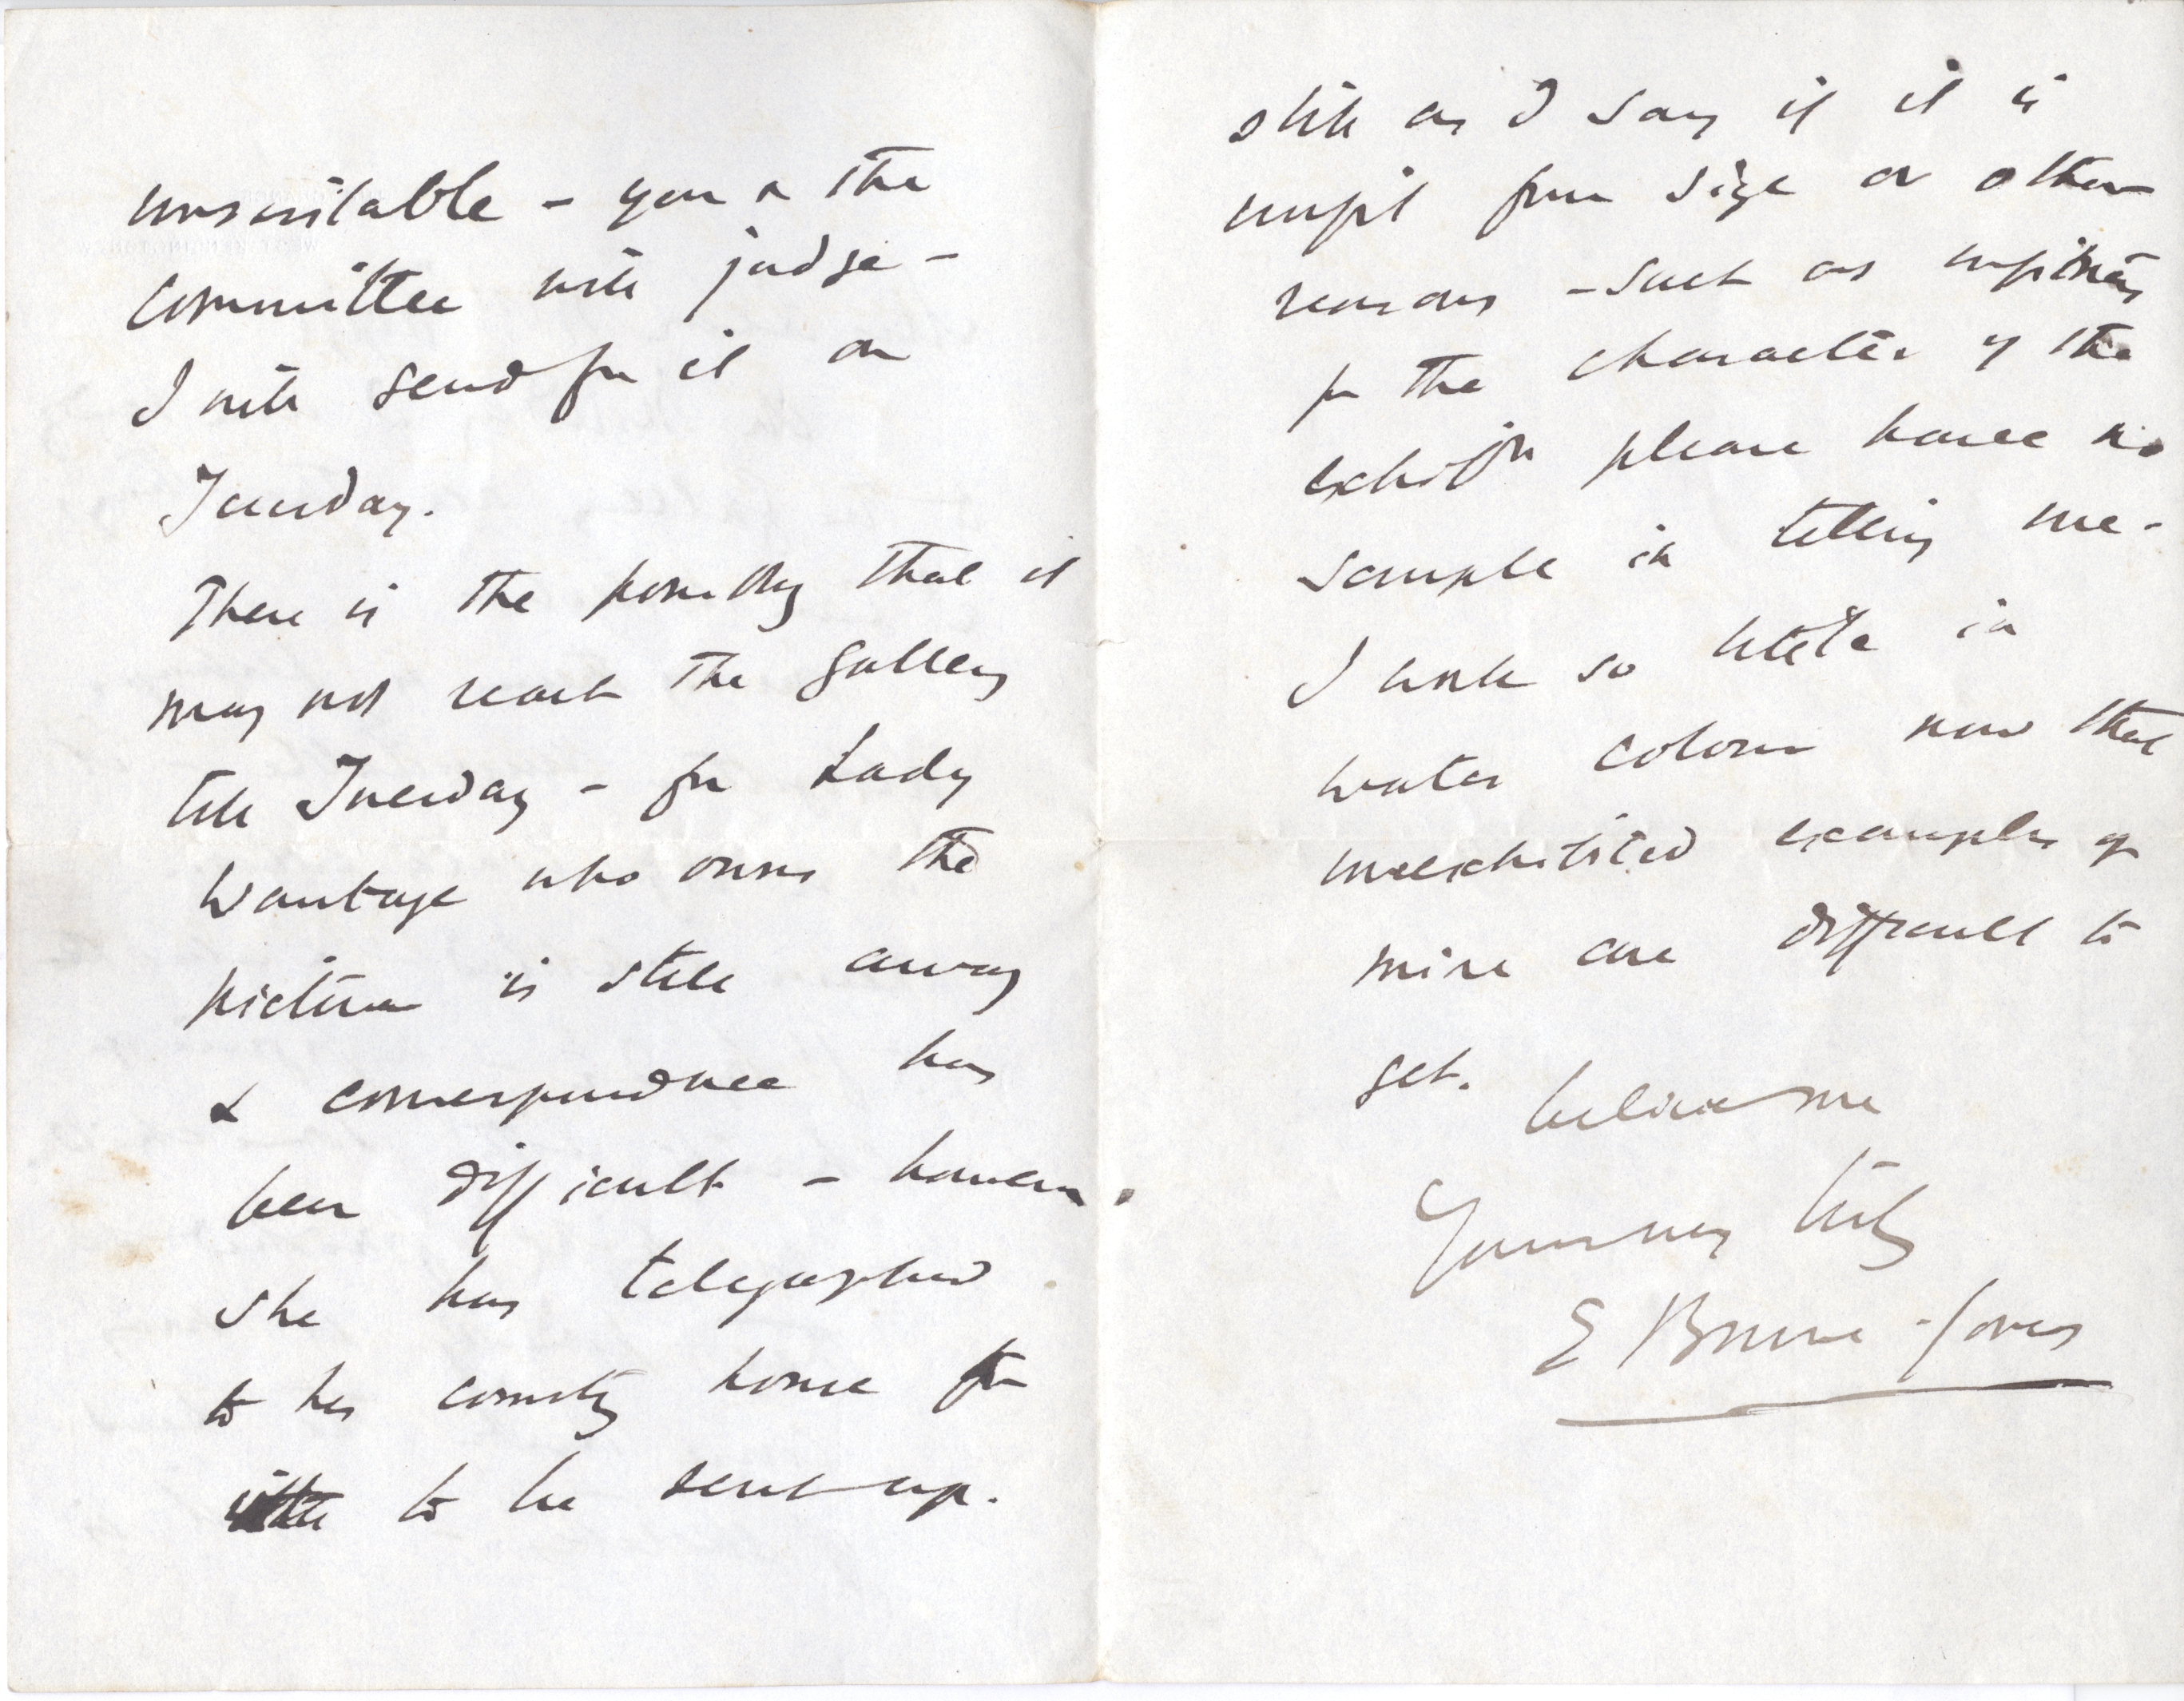 unsuitable - you or the
committee will judge -
I will send for it on
Tuesday.
There is the possibility that it
may not reach the gallery
till Tuesday - for Lady
Wantage who owns the
picture is still away
& correspondence has
been difficult - however
she has telegraphed
to her country house for
to be sent up.
still as I say if it is
unfit from size or other
reasons - such as unfitness
for the character of the
exhibn please have no
scruple in telling me -
I work so little in
water colour now that
unexhibited examples of
mine are difficult to
get.
believe me
Yours very truly
E Burne-Jones